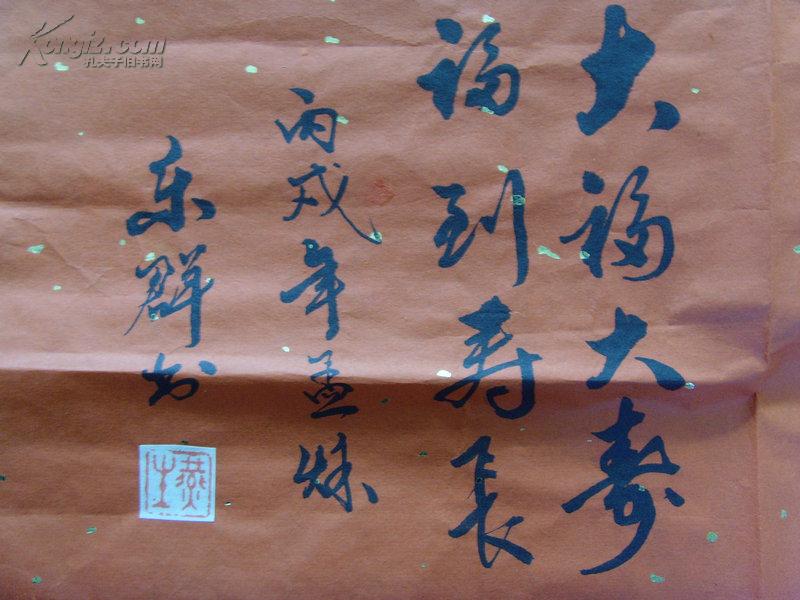 大福大寿
福到寿长
丙戌年孟秋
东群书
Kongfz.com
孔夫子旧书网